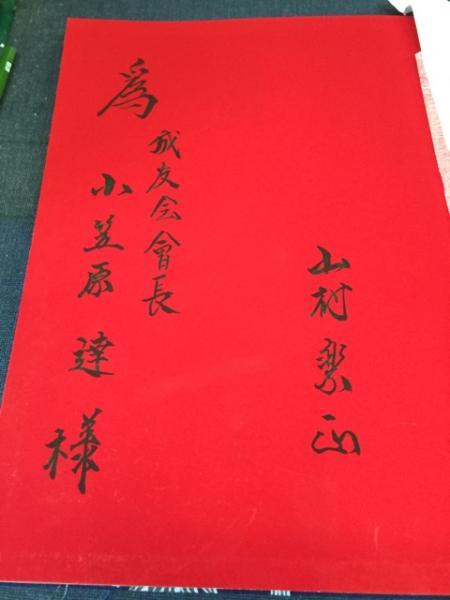 山村樂正
成友会會長
為小笠原達様